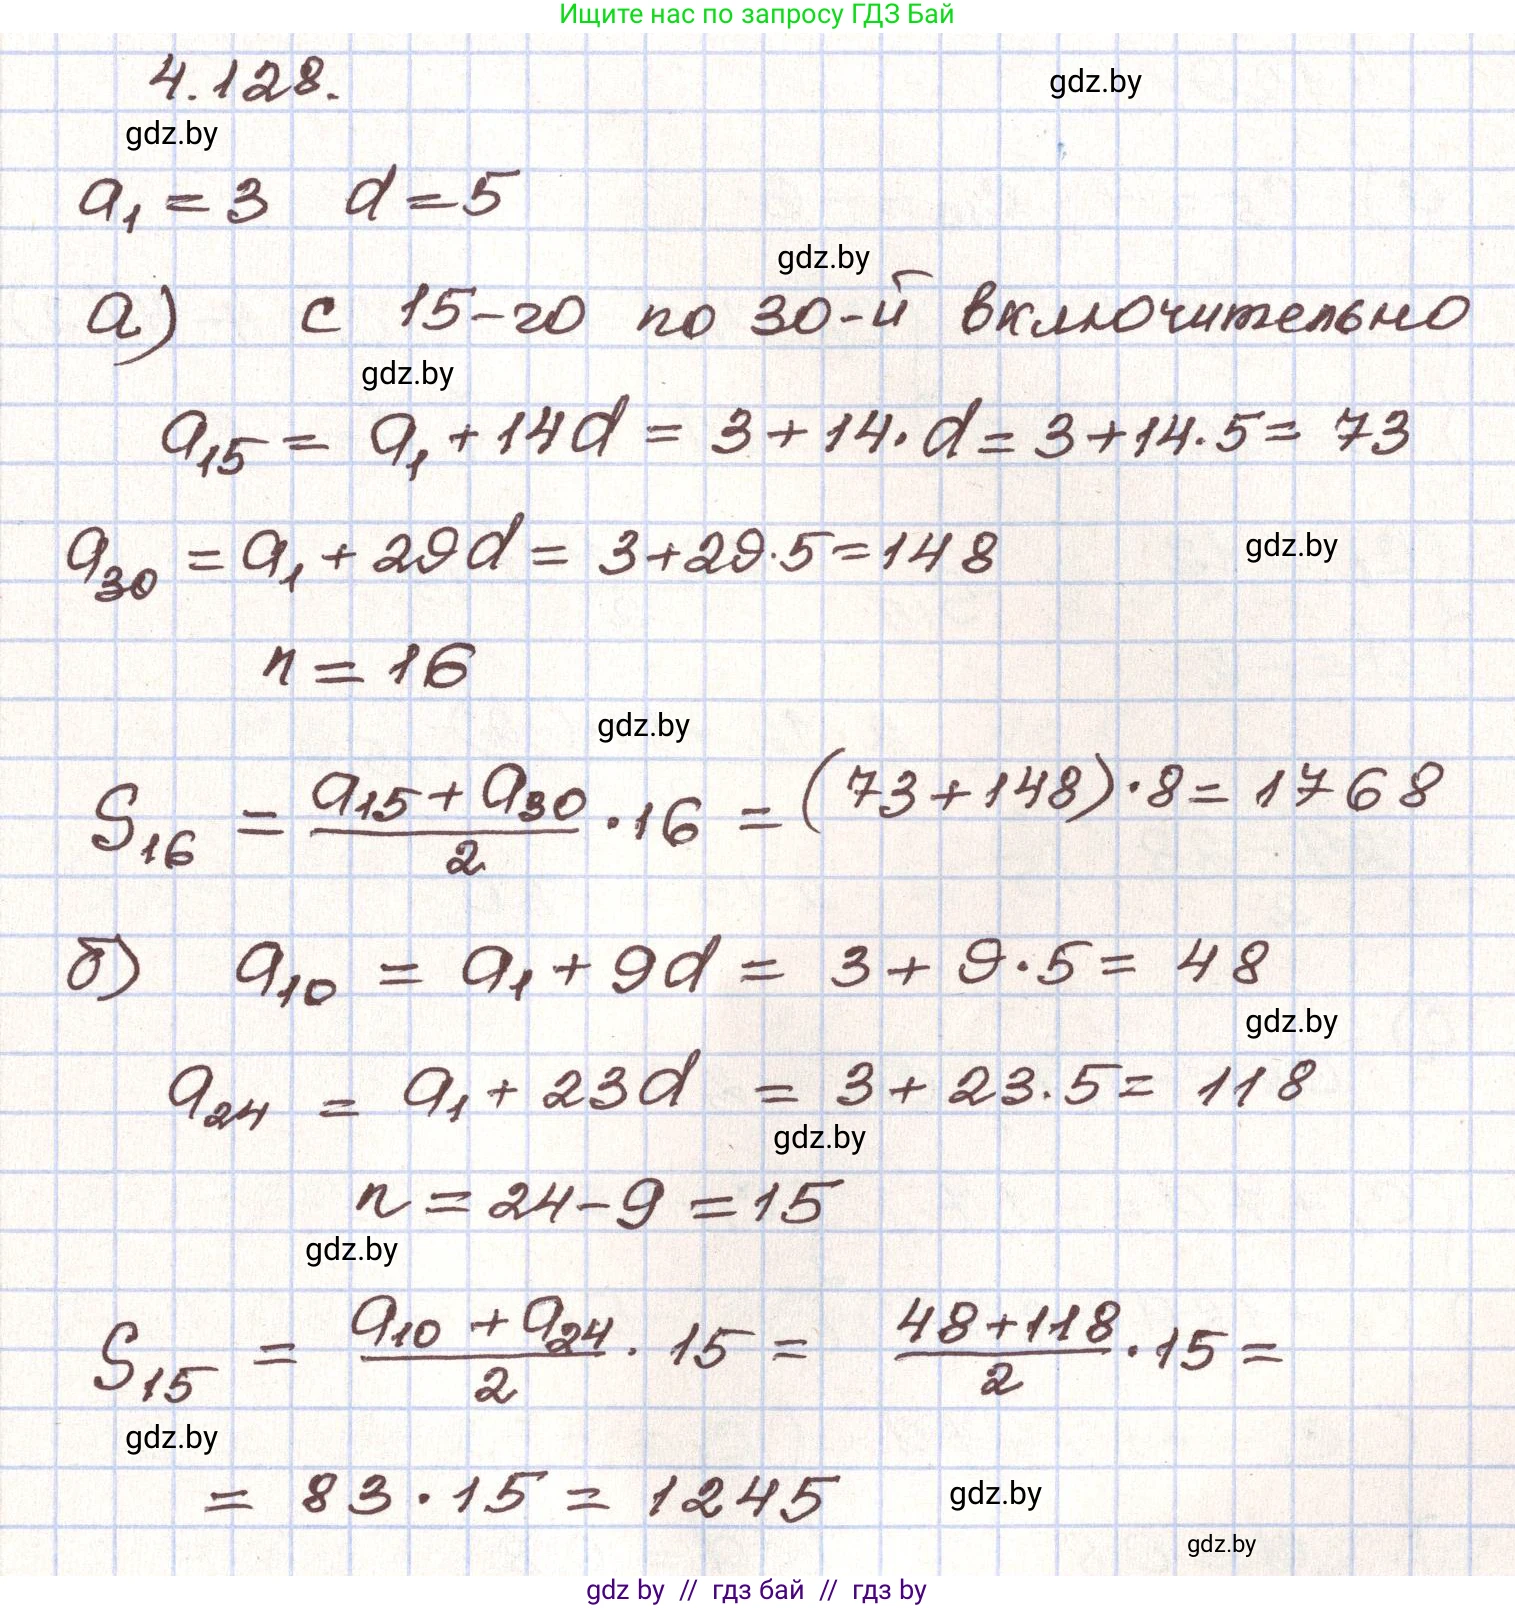 Ищите нас по запросу ГДЗ Бай
4.128.
gdz.by
gdz.by
a₁ = 3 d = 5
gdz.by
а) с 15-го по 30-й включительно
gdz.by
a₁₅ = a₁ + 14d = 3 + 14 · d = 3 + 14 · 5 = 73
a₃₀ = a₁ + 29d = 3 + 29 · 5 = 148
gdz.by
n = 16
gdz.by
S₁₆ = (a₁₅ + a₃₀)/2 · 16 = (73 + 148) · 8 = 1768
б) a₁₀ = a₁ + 9d = 3 + 9 · 5 = 48
gdz.by
a₂₄ = a₁ + 23d = 3 + 23 · 5 = 118
gdz.by
n = 24 - 9 = 15
gdz.by
S₁₅ = (a₁₀ + a₂₄)/2 · 15 = (48 + 118)/2 · 15 =
gdz.by
= 83 · 15 = 1245
gdz.by
gdz.by
gdz by // гдз бай // гдз by